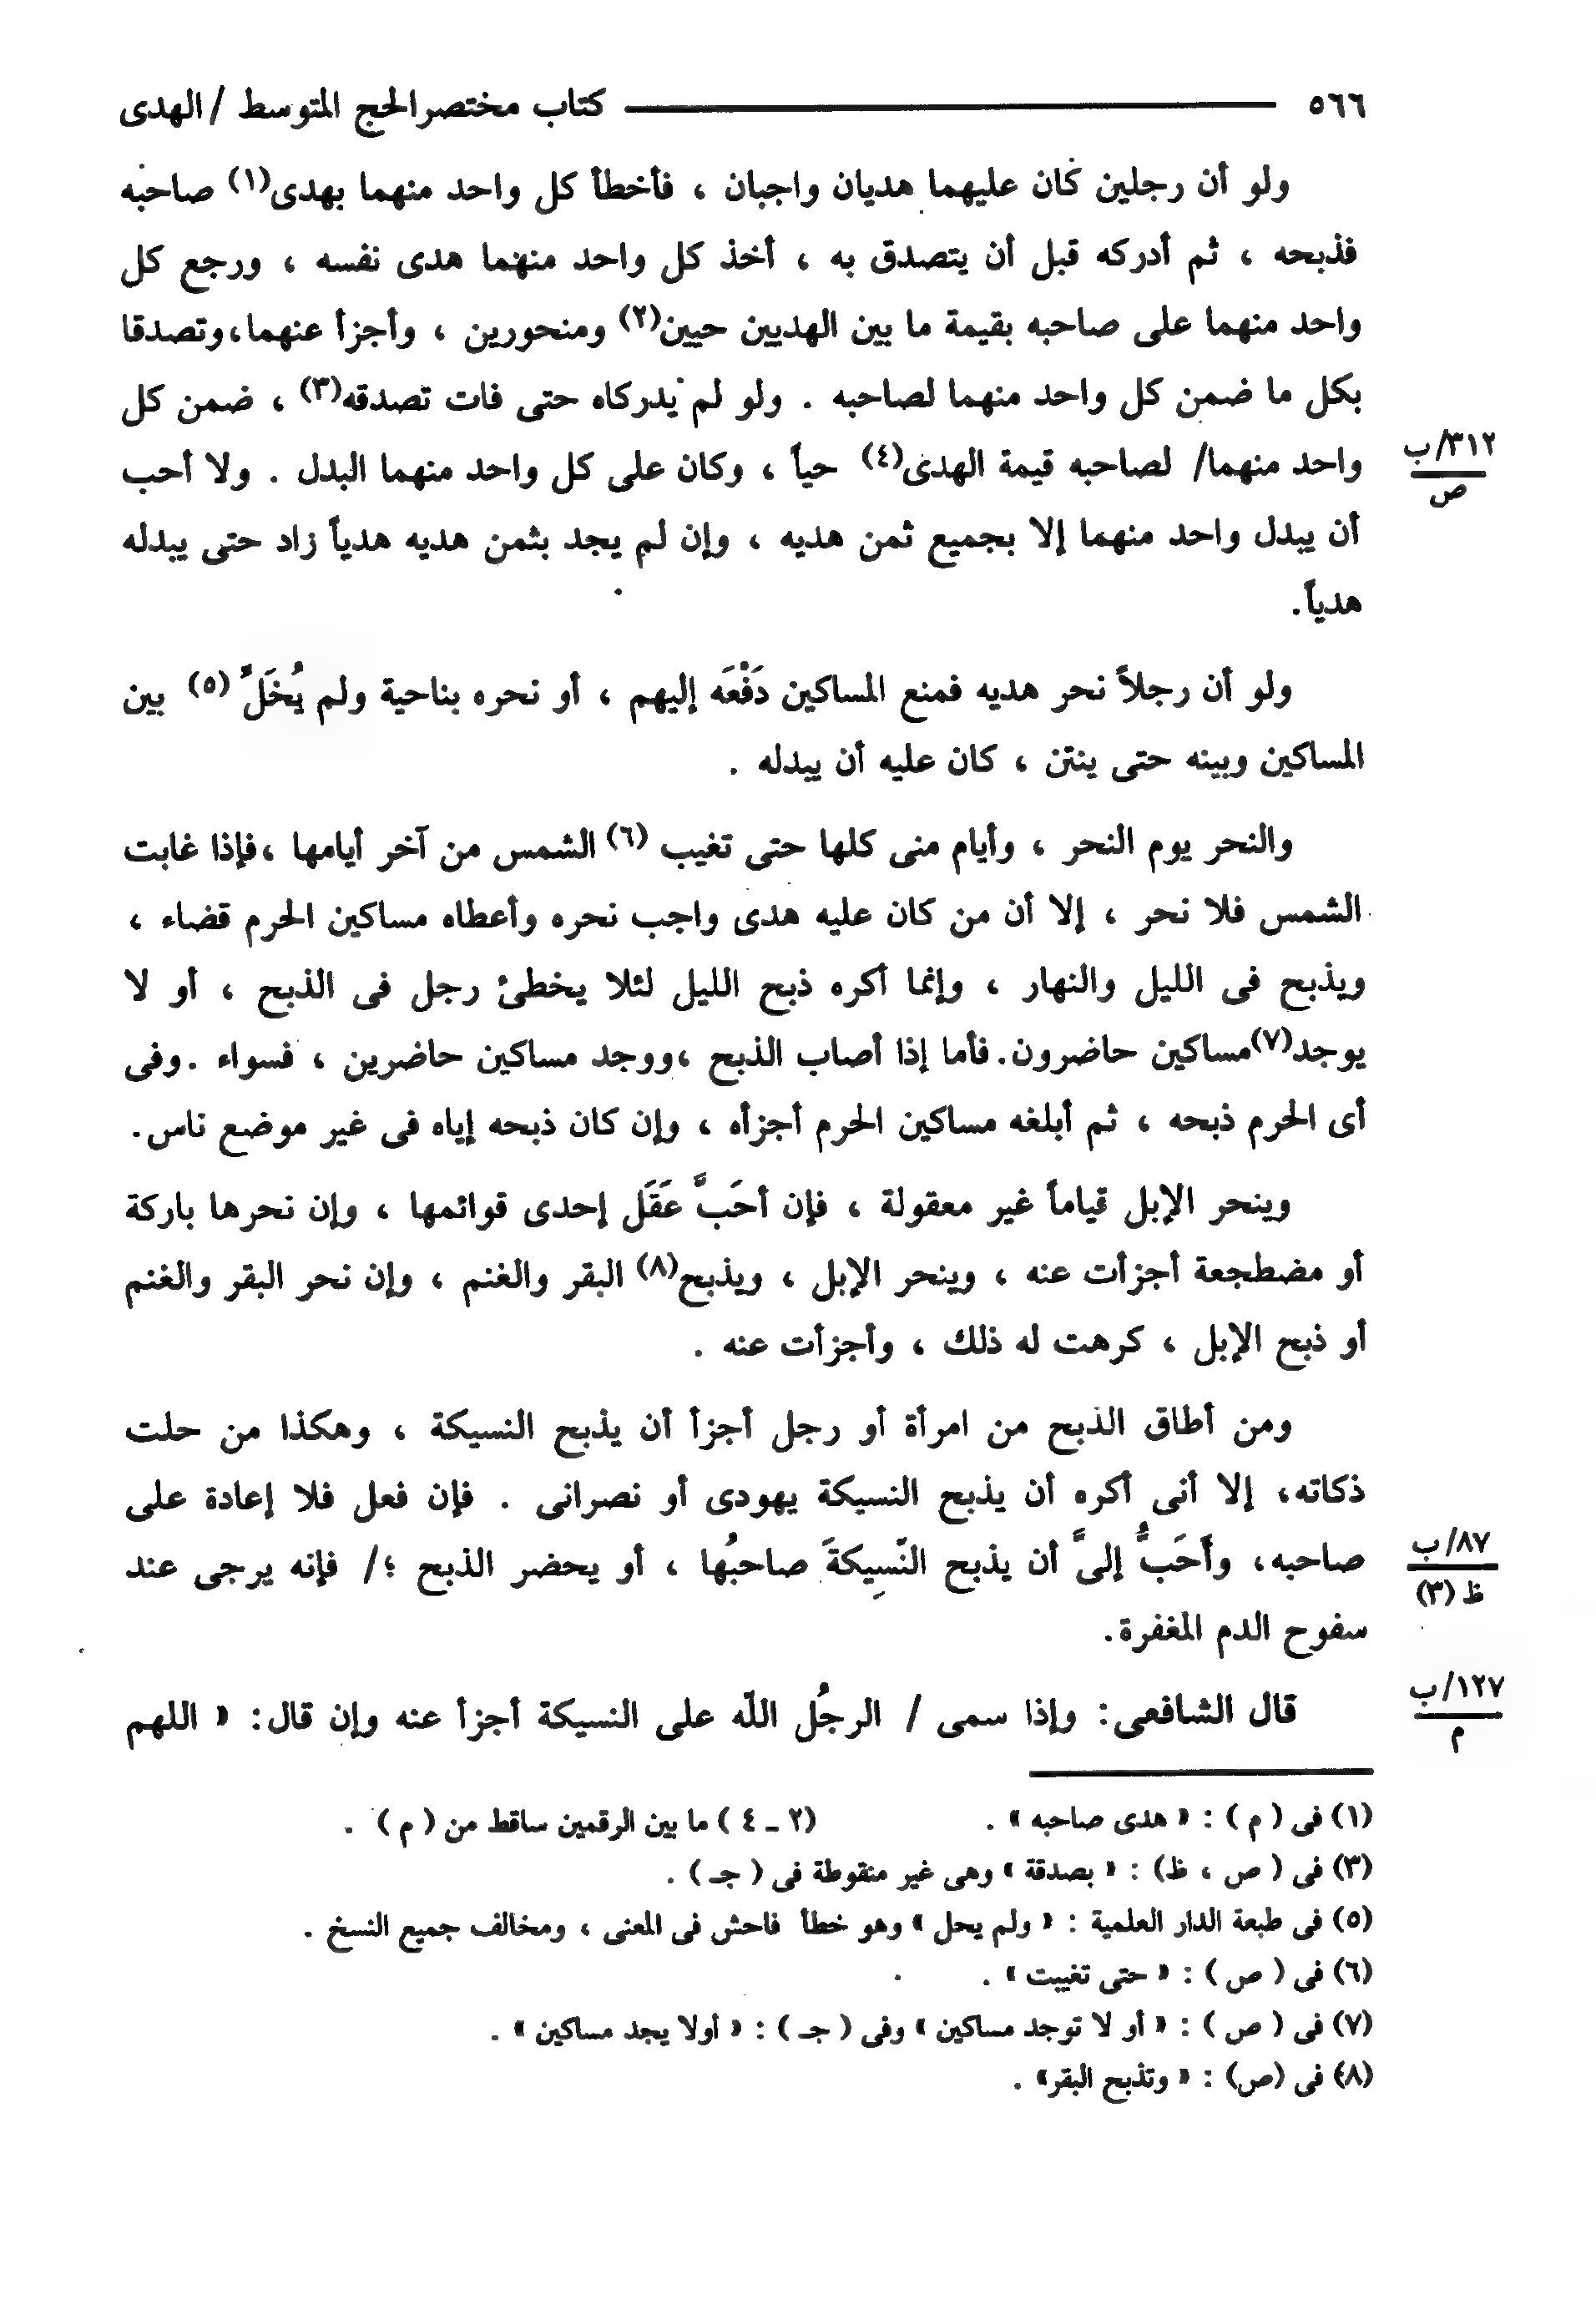 ٥٦٦ كتاب مختصر الحج المتوسط / الهدى
ولو أن رجلين كان عليهما هديان واجبان ، فأخطأ كل واحد منهما بهدى(١) صاحبه
فذبحه ، ثم أدركه قبل أن يتصدق به ، أخذ كل واحد منهما هدى نفسه ، ورجع كل
واحد منهما على صاحبه بقيمة ما بين الهديين حيين(٢) ومنحورين ، وأجزأ عنهما،وتصدقا
بكل ما ضمن كل واحد منهما لصاحبه . ولو لم يدركاه حتى فات تصدقه(٣) ، ضمن كل
واحد منهما/ لصاحبه قيمة الهدى(٤) حياً ، وكان على كل واحد منهما البدل . ولا أحب
٣١٢/ب
ص
أن يبدل واحد منهما إلا بجميع ثمن هديه ، وإن لم يجد بثمن هديه هدياً زاد حتى يبدله
هدياً.
ولو أن رجلاً نحر هديه فمنع المساكين دَفْعَه إليهم ، أو نحره بناحية ولم يُخَلِّ (٥) بين
المساكين وبينه حتى ينتن ، كان عليه أن يبدله .
والنحر يوم النحر ، وأيام منى كلها حتى تغيب (٦) الشمس من آخر أيامها ،فإذا غابت
الشمس فلا نحر ، إلا أن من كان عليه هدى واجب نحره وأعطاه مساكين الحرم قضاء ،
ويذبح فى الليل والنهار ، وإنما أكره ذبح الليل لئلا يخطئ رجل فى الذبح ، أو لا
يوجد(٧)مساكين حاضرون. فأما إذا أصاب الذبح ،ووجد مساكين حاضرين ، فسواء .وفى
أى الحرم ذبحه ، ثم أبلغه مساكين الحرم أجزأه ، وإن كان ذبحه إياه فى غير موضع ناس.
وينحر الإبل قياماً غير معقولة ، فإن أحَبَّ عَقَل إحدى قوائمها ، وإن نحرها باركة
أو مضطجعة أجزأت عنه ، وينحر الإبل ، ويذبح(٨) البقر والغنم ، وإن نحر البقر والغنم
أو ذبح الإبل ، كرهت له ذلك ، وأجزأت عنه .
ومن أطاق الذبح من امرأة أو رجل أجزأ أن يذبح النسيكة ، وهكذا من حلت
ذكاته، إلا أنى أكره أن يذبح النسيكة يهودى أو نصرانى . فإن فعل فلا إعادة على
صاحبه، وأَحَبُّ إلىَّ أن يذبح النّسِيكَةَ صاحبُها ، أو يحضر الذبح ؛/ فإنه يرجى عند
٨٧/ب
ظ (٣)
سفوح الدم المغفرة.
قال الشافعى: وإذا سمى / الرجُل اللّه على النسيكة أجزأ عنه وإن قال: « اللهم
١٢٧/ب
م
(١) فى ( م ) : « هدى صاحبه » . (٢ ــ ٤ ) ما بين الرقمين ساقط من ( م ) .
(٣) فى ( ص ، ظ) : « بصدقة » وهى غير منقوطة فى ( جـ ) .
(٥) فى طبعة الدار العلمية : « ولم يحل » وهو خطأ فاحش فى المعنى ، ومخالف جميع النسخ .
(٦) فى ( ص ) : « حتى تغييت » .
(٧) فى ( ص ) : « أو لا توجد مساكين » وفى ( جـ ) : « أولا يجد مساكين » .
(٨) فى (ص) : « وتذبح البقر» .